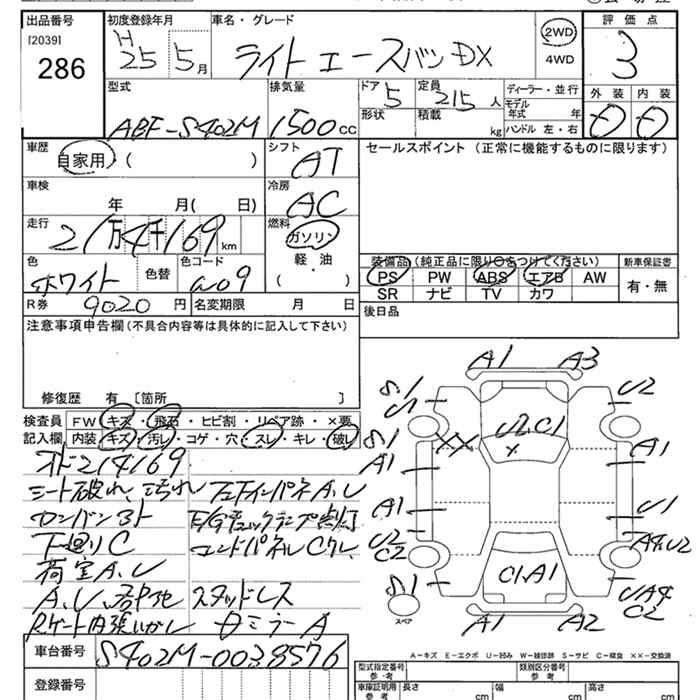 出品番号
[2039]
286
初度登録年月
H25 5月
車名・グレード
ライトエースバン DX
2WD
4WD
評価点
3
型式
ABF-S402M
排気量
1500 cc
ドア
5
形状
定員
215 人
積載
kg
ディーラー・並行
モデル
年式 年
ハンドル 左・右
外装 内装
車歴
自家用 ( )
シフト
AT
セールスポイント (正常に機能するものに限ります)
車検
年 月( 日)
冷房
AC
走行
21万4千169 km
燃料
ガソリン
軽・油
( )
色
ホワイト
色替
色コード
R券 9020 円
名変期限 月 日
装備品 (純正品に限り○をつけてください)
PS PW ABS エアB AW
SR ナビ TV カワ
新車保証書
有・無
後日品
注意事項申告欄 (不具合内容等は具体的に記入して下さい)
修復歴 有 [箇所 ]
検査員
記入欄
FW キズ・飛石・ヒビ割・リペア跡・×要
内装 キズ・汚レ・コゲ・穴・スレ・キレ・破レ
オド214169
シート破れ、汚れ
カンバン3ト
下廻りC
荷室A、U
スタッドレス
A1 A3
S.1 U1 U2
S.1 XX U2C1 X
A1 A1
A1 U1
U2
C2
C1.A1
S.1
C2
スペア
A1 A2
A-キズ E-エクボ U-凹み W-補修跡 S-サビ C-腐食 XX-交換済
車台番号 S402M-0038576
登録番号
型式指定番号
参考
類別区分番号
参考
車庫証明用
参考
長さ cm
幅 cm
高さ cm